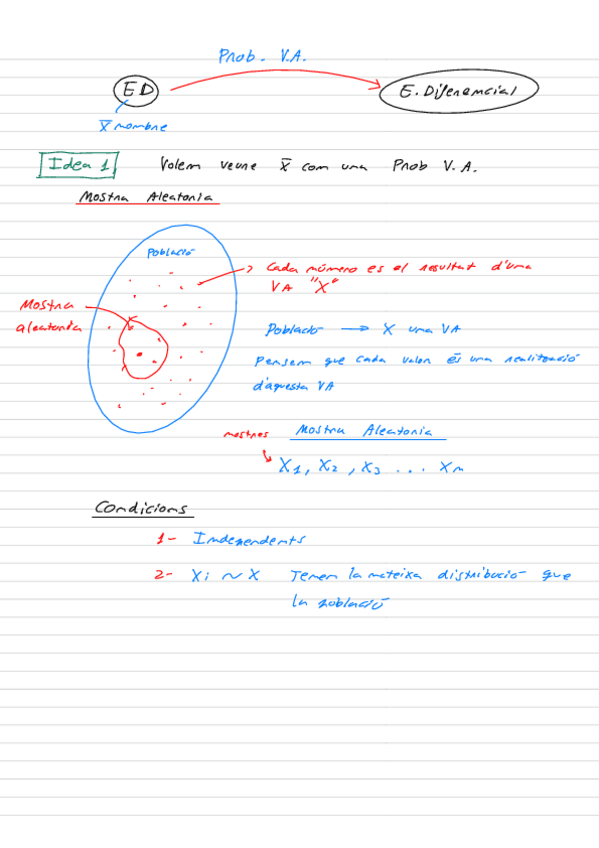 Prob. V.A.
ED
E. Diferencial
x̄ nombre
Idea 1 Volem veure x̄ com una Prob V.A.
Mostra Aleatoria
Població
Cada número es el resultat d'una
VA "X"
Mostra
aleatoria
Població → X una VA
Pensem que cada valor és una realització
d'aquesta VA
mostres Mostra Aleatoria
X1, X2, X3 ... Xn
Condicions
1- Independents
2- Xi ~ X Tenen la mateixa distribució que
la població